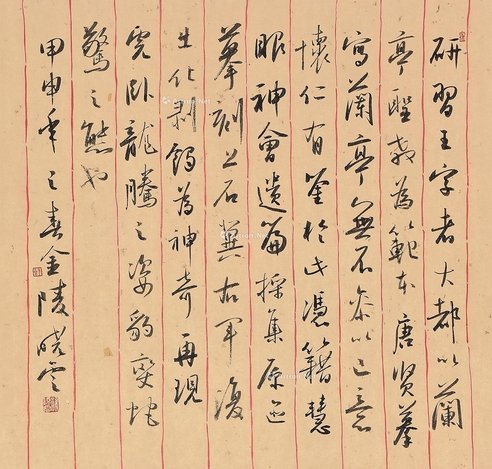 研習王字者大都以蘭
亭聖教為範本唐賢摹
寫蘭亭無不參以己意
懷仁有鑒於此憑籍慧
眼神會遺篇採集原迹
摹刻上石冀右軍復
生化剥蝕為神奇再現
虎卧龍騰之姿豹變蛇
驚之態也
甲申年之春金陵曉雲